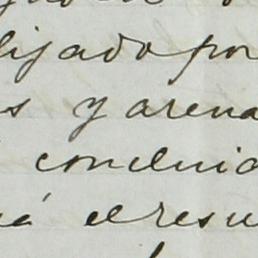 lijado por
s y arena
concluid
á el resu